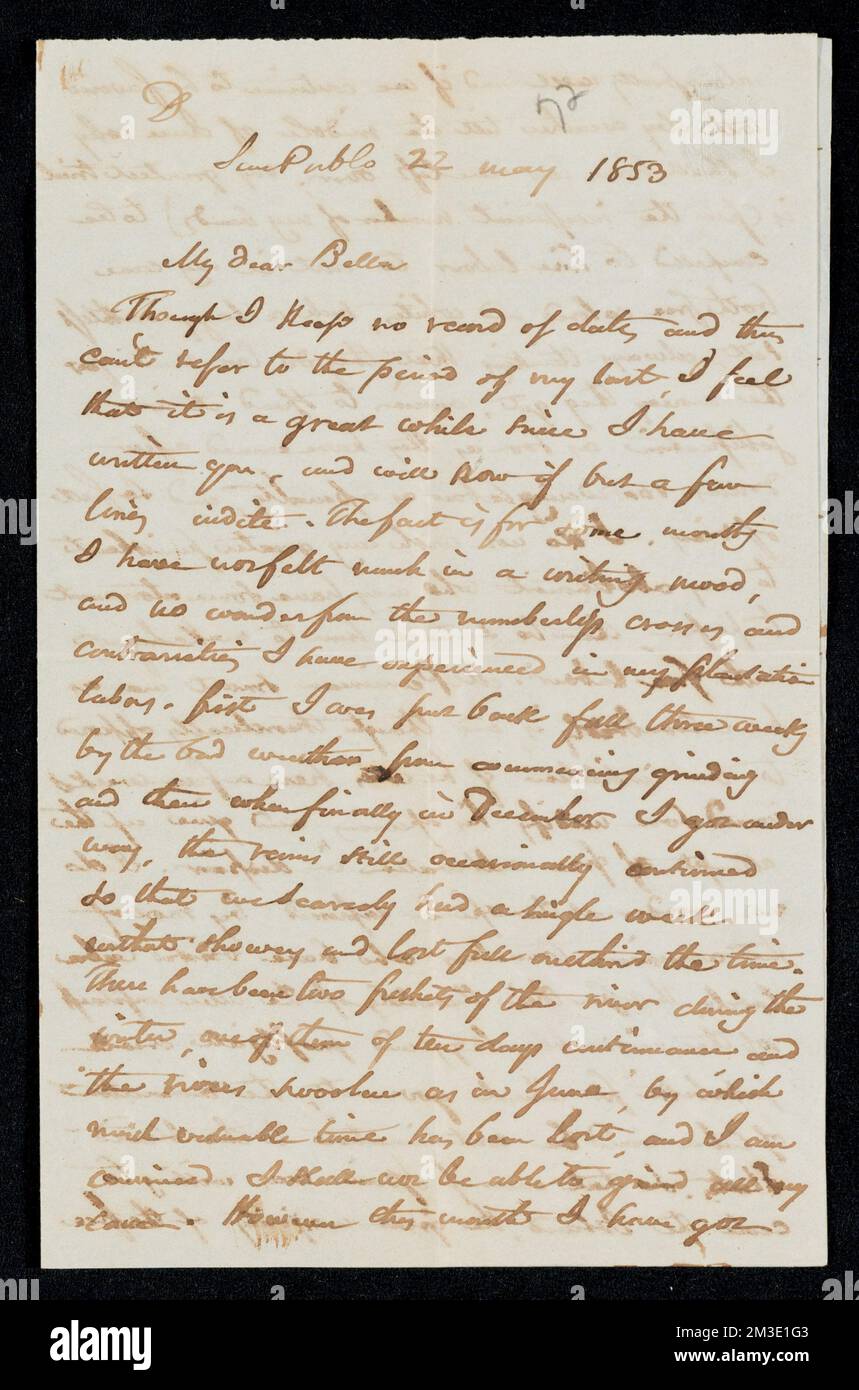 D
72
San Pablo 22 May 1853
My dear Bella
Though I keep no record of dates and thus
can't refer to the period of my last, I feel
that it is a great while since I have
written you, and will now if but a few
lines indite. The fact is for some months
I have not felt much in a writing mood,
and no wonder from the numberless crosses and
contrarieties I have experienced in my plantation
labors. first I was put back full three weeks
by the bad weather from commencing grinding
and then when finally in December I got under
way, the rains still occasionally continued
so that we scarcely had a single week
without showers and lost full one third the time.
There have been two freshets of the river during the
winter, one of them of ten days continuance and
the rivers swoolen as in June, by which
much valuable time has been lost, and I am
convinced I shall not be able to grind all my
cane. However this month I have got
alamy
Image ID: 2M3E1G3
www.alamy.com